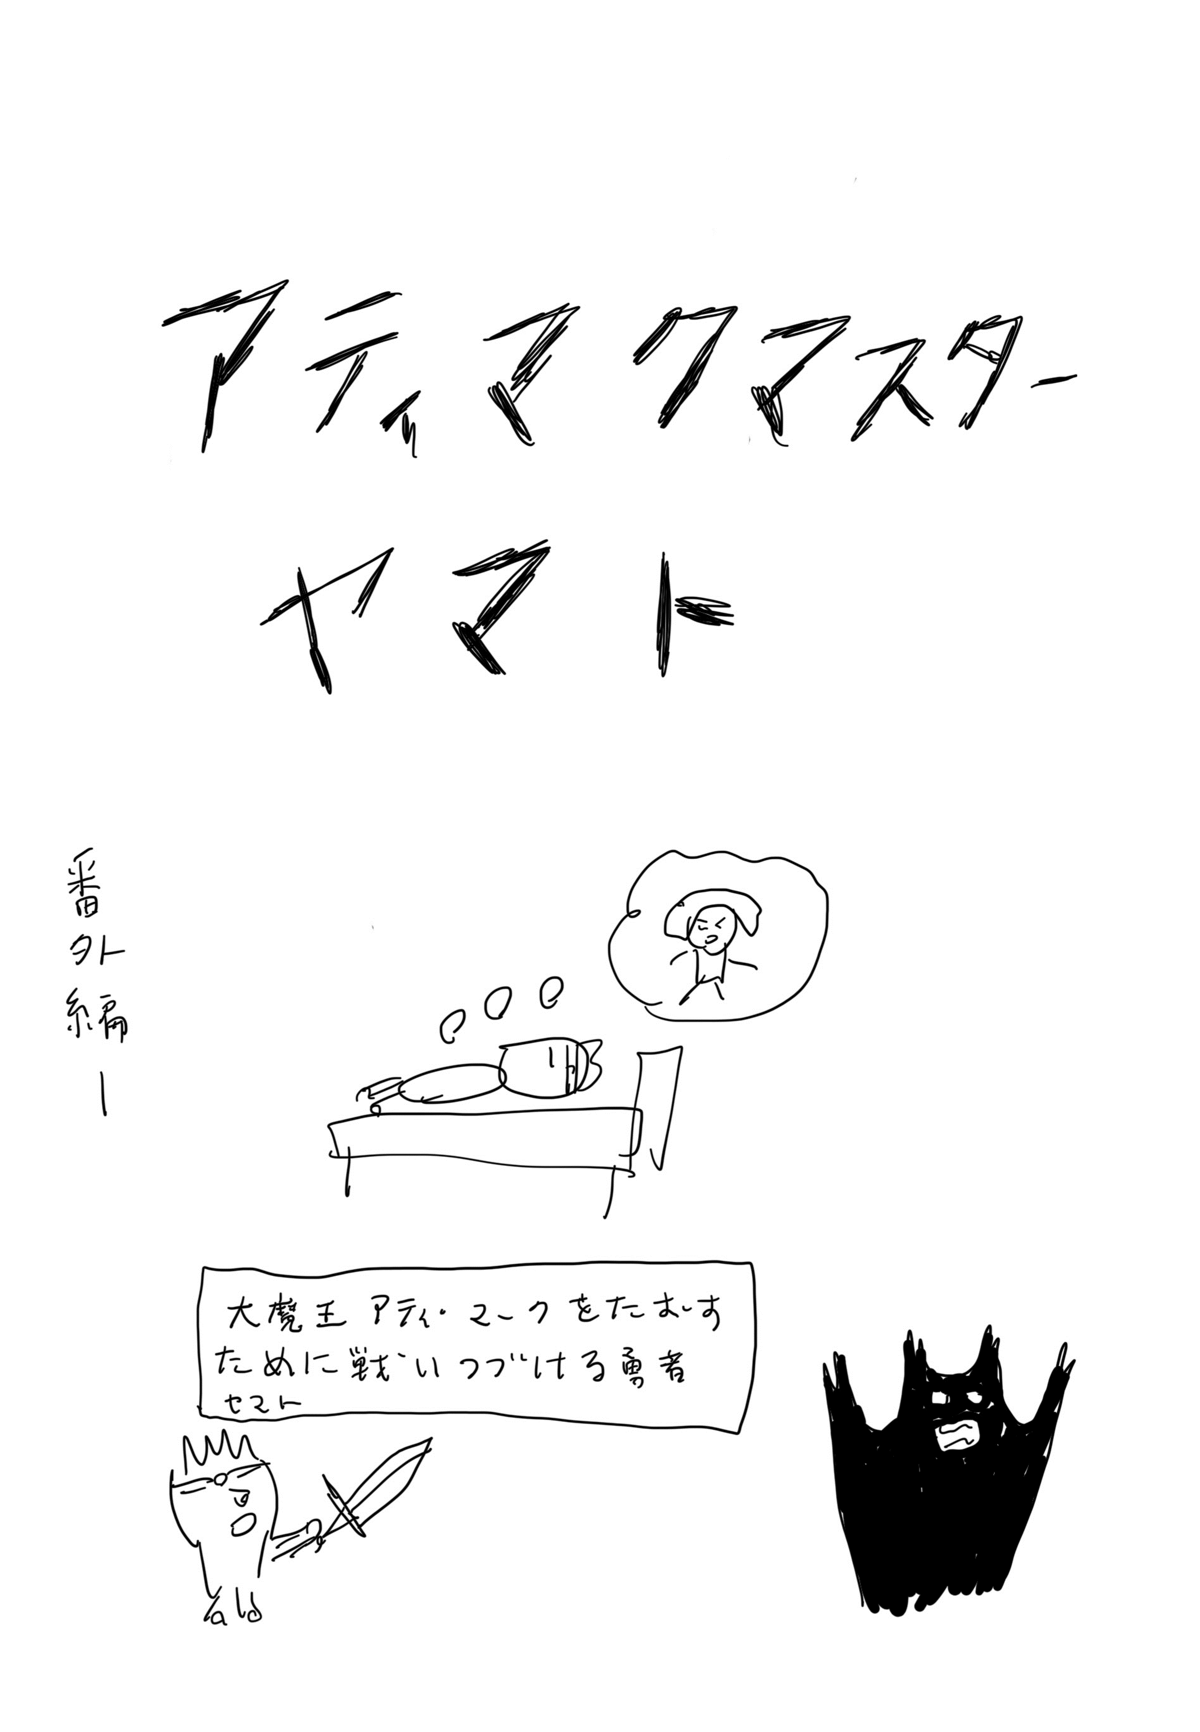 アティマクマスター
ヤマト
番外編1
大魔王アティ・マークをたおす
ために戦いつづける勇者
ヤマト